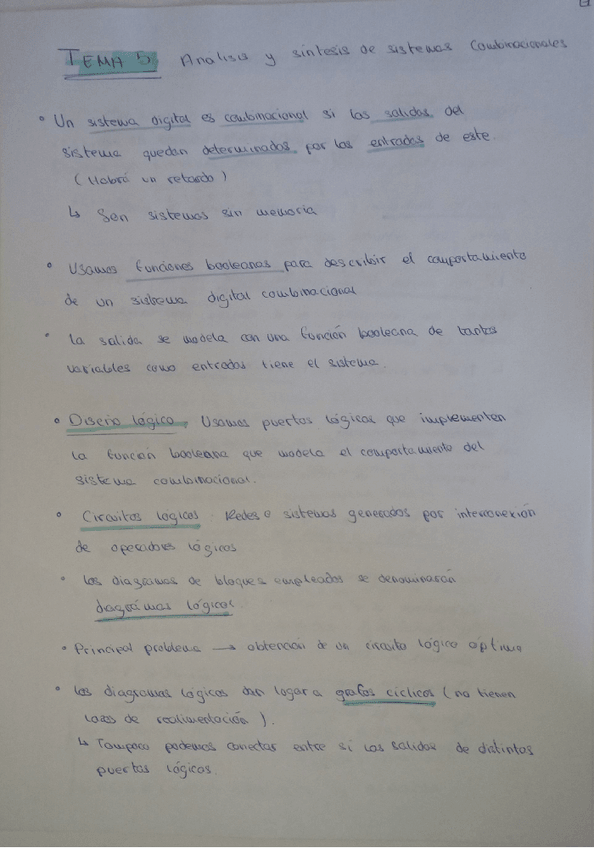 TEMA 5 Analisis y síntesis de sistemas combinacionales
• Un sistema digital es combinacional si las salidas del
sistema quedan determinadas por las entradas de este.
(Habrá un retardo)
↳ Sen sistemas sin memoria
• Usamos funciones booleanas para describir el comportamiento
de un sistema digital combinacional
• La salida se modela con una función booleana de tantas
variables como entradas tiene el sistema.
• Diseño lógico. Usamos puertas lógicas que implementen
la función booleana que modela el comportamiento del
sistema combinacional.
• Circuitos lógicos. Redes o sistemas generados por interconexión
de operadores lógicos
• Los diagramas de bloques empleados se denominarán
diagramas lógicos.
• Principal problema → obtención de un circuito lógico óptimo
• Los diagramas lógicos dan lugar a grafos cíclicos (no tienen
lazos de realimentación).
↳ Tampoco podemos conectar entre sí las salidas de distintas
puertas lógicas.